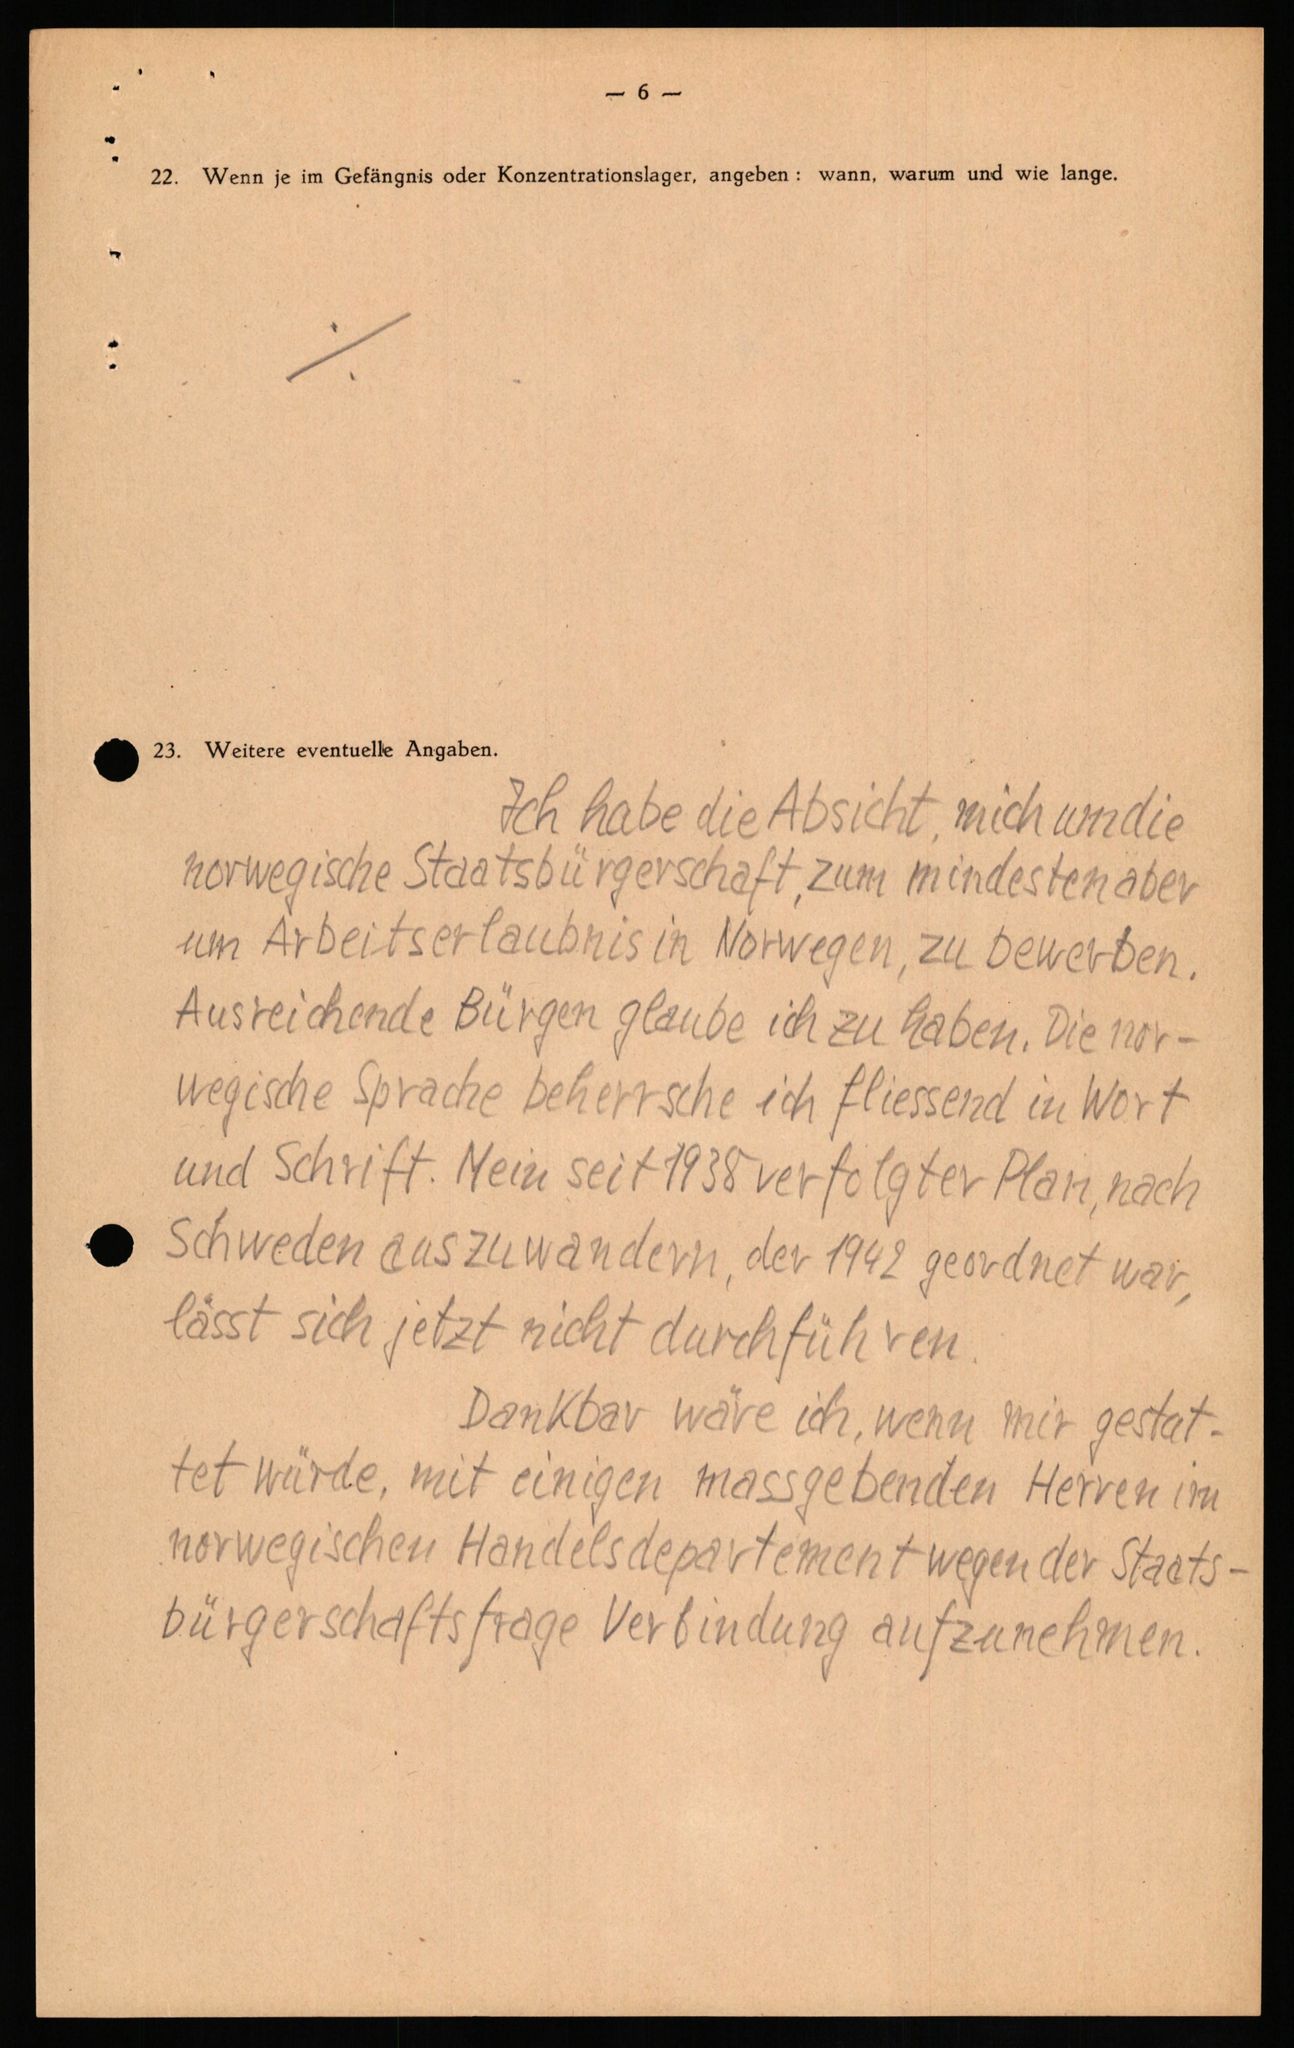 — 6 —
22. Wenn je im Gefängnis oder Konzentrationslager, angeben: wann, warum und wie lange.
⁒
23. Weitere eventuelle Angaben.
Ich habe die Absicht, mich um die
norwegische Staatsbürgerschaft, zum mindesten aber
um Arbeitserlaubnis in Norwegen, zu bewerben.
Ausreichende Bürgen glaube ich zu haben. Die nor-
wegische Sprache beherrsche ich fliessend in Wort
und Schrift. Mein seit 1938 verfolgter Plan, nach
Schweden auszuwandern, der 1942 geordnet war,
lässt sich jetzt nicht durchführen.
Dankbar wäre ich, wenn mir gestat-
tet würde, mit einigen massgebenden Herren im
norwegischen Handelsdepartement wegen der Staats-
bürgerschaftsfrage Verbindung aufzunehmen.